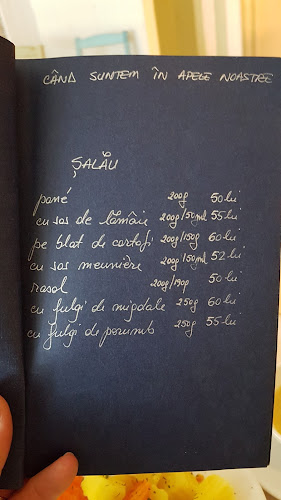 CÂND SUNTEM ÎN APELE NOASTRE
ȘALĂU
pané 200g 50 lei
cu sos de lămâie 200g/50ml 55 lei
pe blat de cartofi 200g/150g 60 lei
cu sos meunière 200g/50ml 52 lei
rasol 200g/190g 50 lei
cu fulgi de migdale 250g 60 lei
cu fulgi de porumb 250g 55 lei